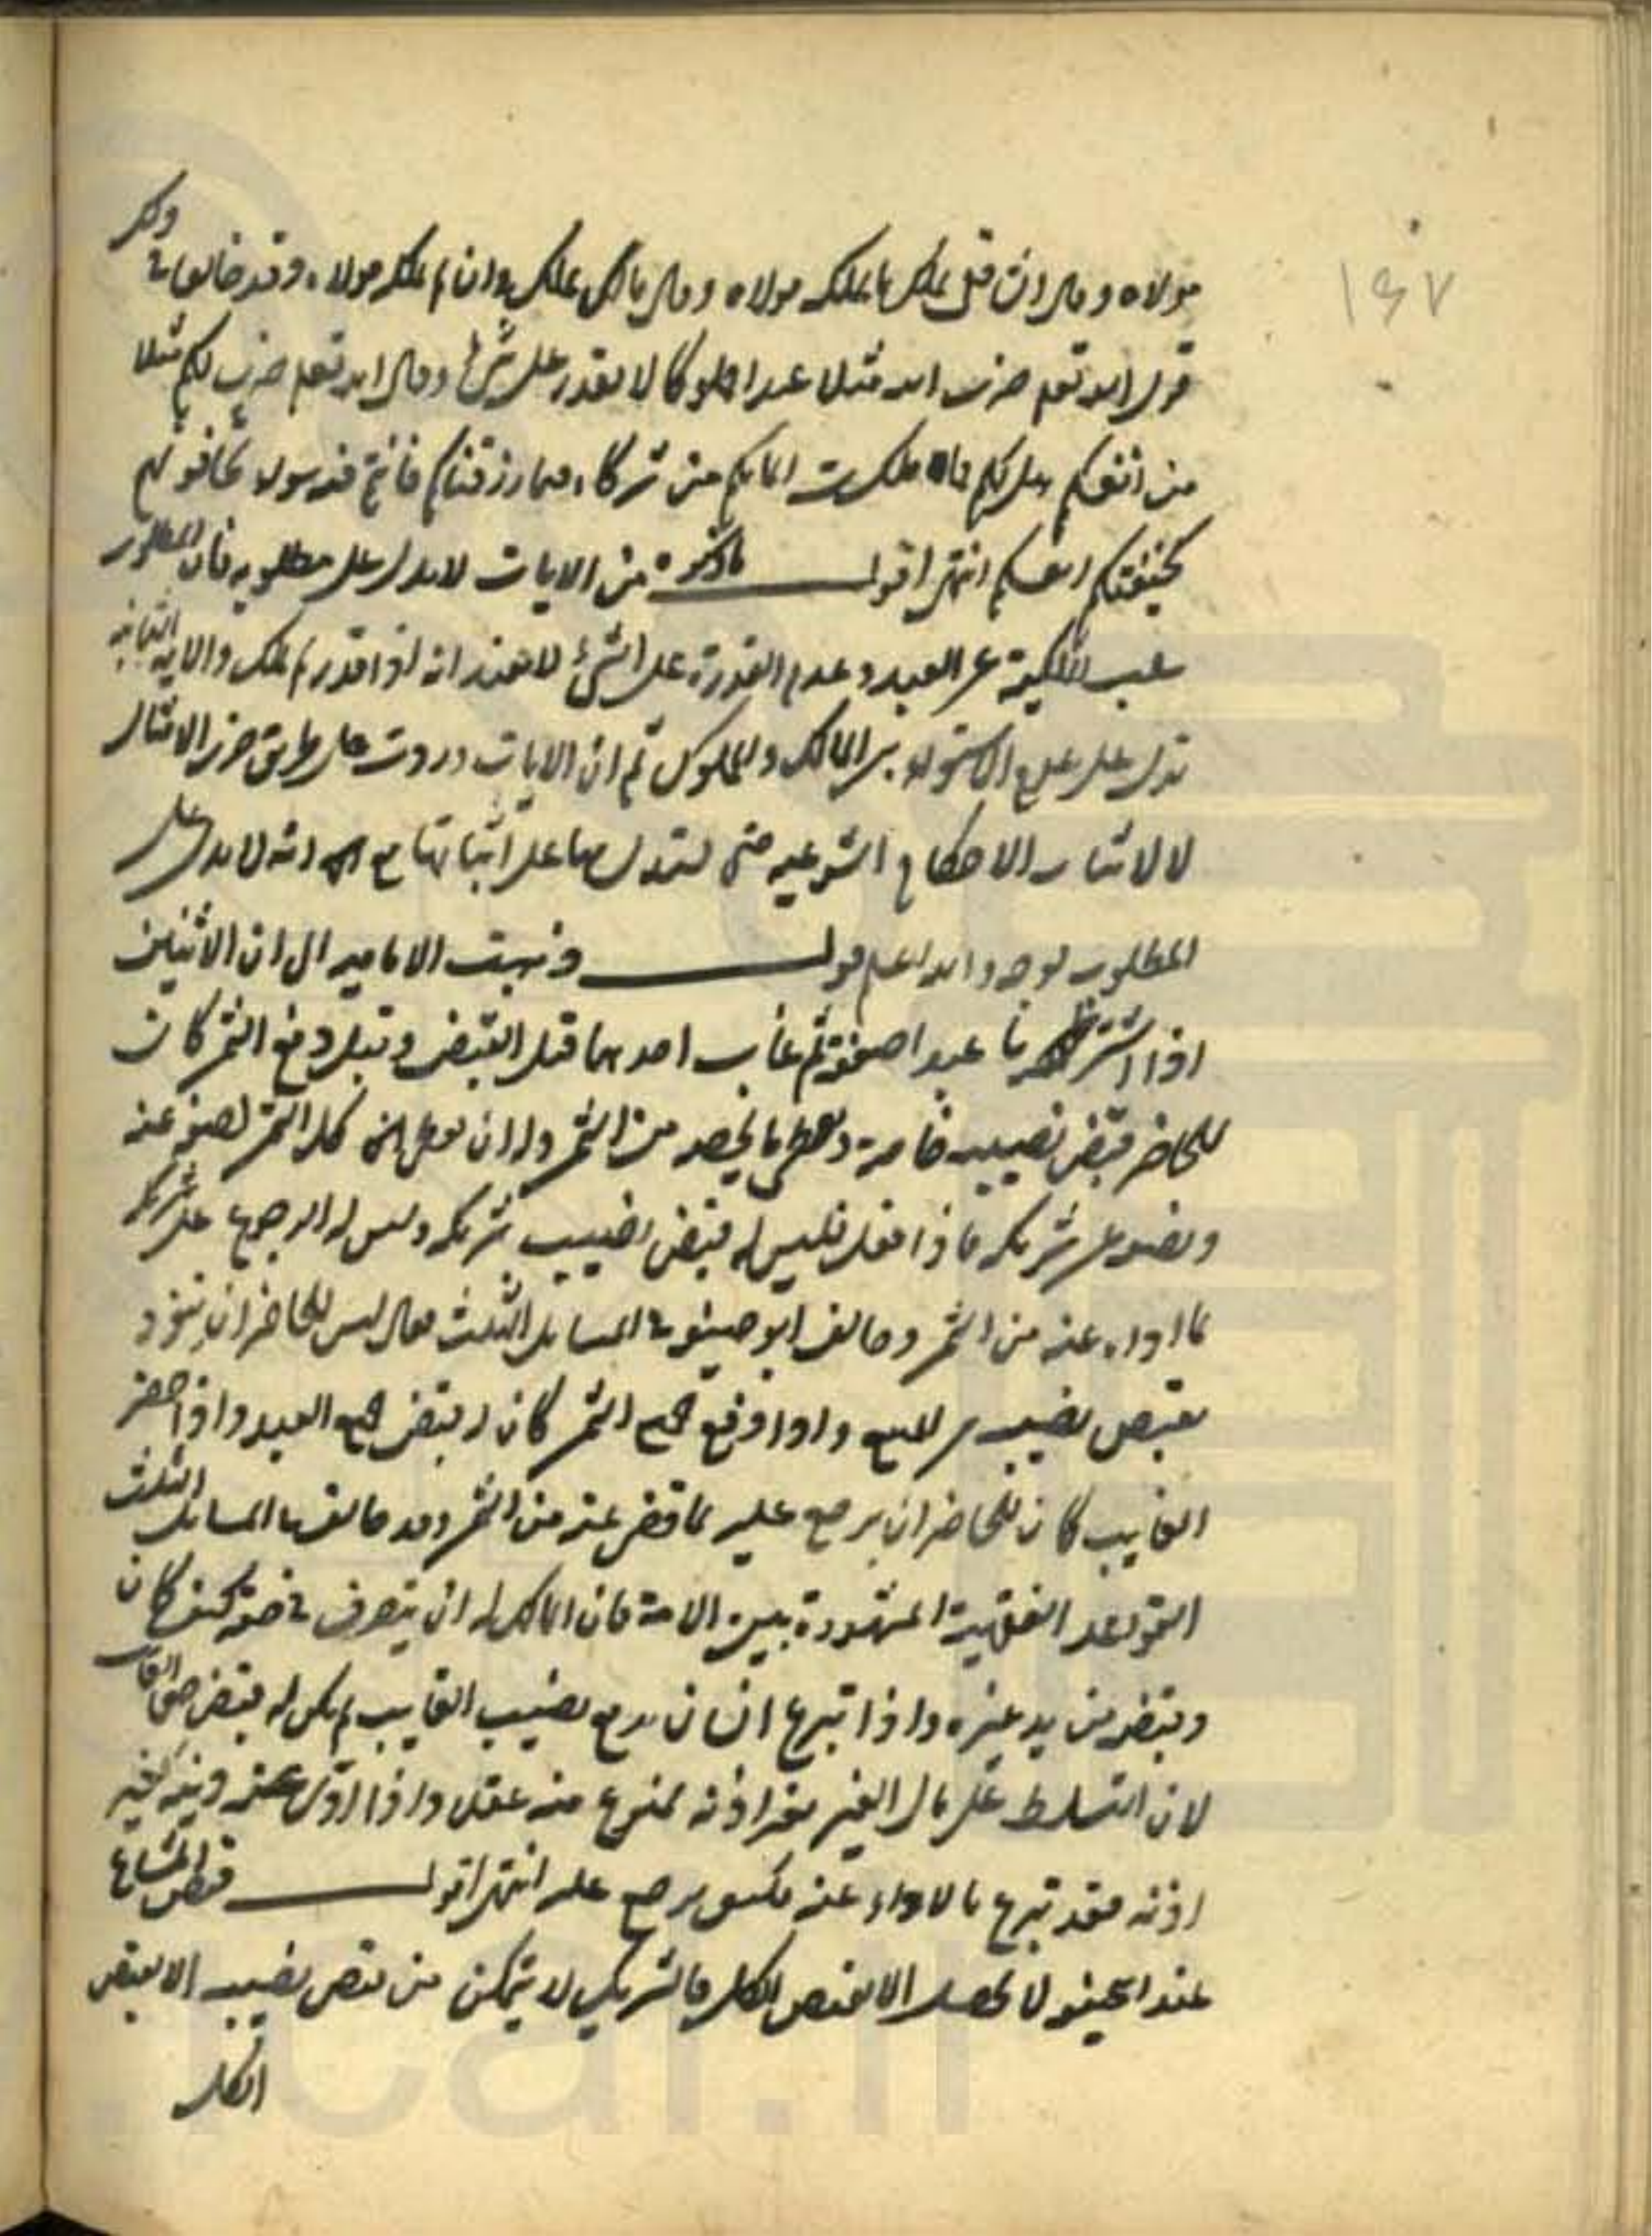 ١٤٧
مولاه وقال الشافعي يملك ما يملكه مولاه وقال مالك يملك وان لم يملكه مولاه وقد خالفا في ذلك
قول الله تعم ضرب الله مثلا عبدا مملوكا لا يقدر على شئ وقال الله تعم ضرب لكم مثلا
من انفسكم هل لكم مما ملكت ايمانكم من شركاء فيما رزقناكم فانتم فيه سواء تخافونهم
كخيفتكم انفسكم انتهى اقول ما ذكره من الايات لا يدل على مطلوبه فان المطلوب
سلب الملكية عن العبد وعدم القدرة على الشئ لا يفيد انه اذا قدر لم يملك والاية الثانية
تدل على عدم الاستواء بين المالك والمملوك ثم ان الايات وردت على طريق ضرب الامثال
لا لاثبات الاحكام الشرعيه حتى يستدل بها على اثباتها مع انه لا يدل على
المطلوب بوجه والله اعلم قوله وذهبت الاماميه الى ان الاثنين
اذا اشتريا عبدا صفقة ثم غاب احدهما قبل القبض وقبل دفع الثمن كان
للحاضر قبض نصيبه خاصة ويعطى ما يخصه من الثمن وله ان يعطى كل الثمن نصفه عنه
ونصفه عن شريكه فاذا فعل فليس له قبض نصيب شريكه وليس له الرجوع على شريكه
بما اداه عنه من الثمن وخالف ابو حنيفه في المسايل الثلث فقال ليس للحاضر ان ينفرد
بقبض نصيبه من المبيع واذا دفع جميع الثمن كان له قبض جميع العبد واذا حضر
الغايب كان للحاضر ان يرجع عليه بما قضى عنه من الثمن وقد خالف في المسايل الثلث
القواعد الفقهية المشهورة بين الامة فان المالك له ان يتصرف في حقه كيف كان
ويقبضه من يد غيره واذا تبرع انسان بدفع نصيب الغايب لم يكن له قبض حق الغايب
لان التسلط على مال الغير بغير اذنه ممنوع منه عقلا واذا ادى عنه دينه بغير
اذنه فقد تبرع بالاداء عنه فكيف يرجع عليه انتهى اقول قبض المشاع
عند ابي حنيفه لا يحصل الا بقبض الكل فالشريك لا يتمكن من قبض نصيبه الا بقبض
الكل